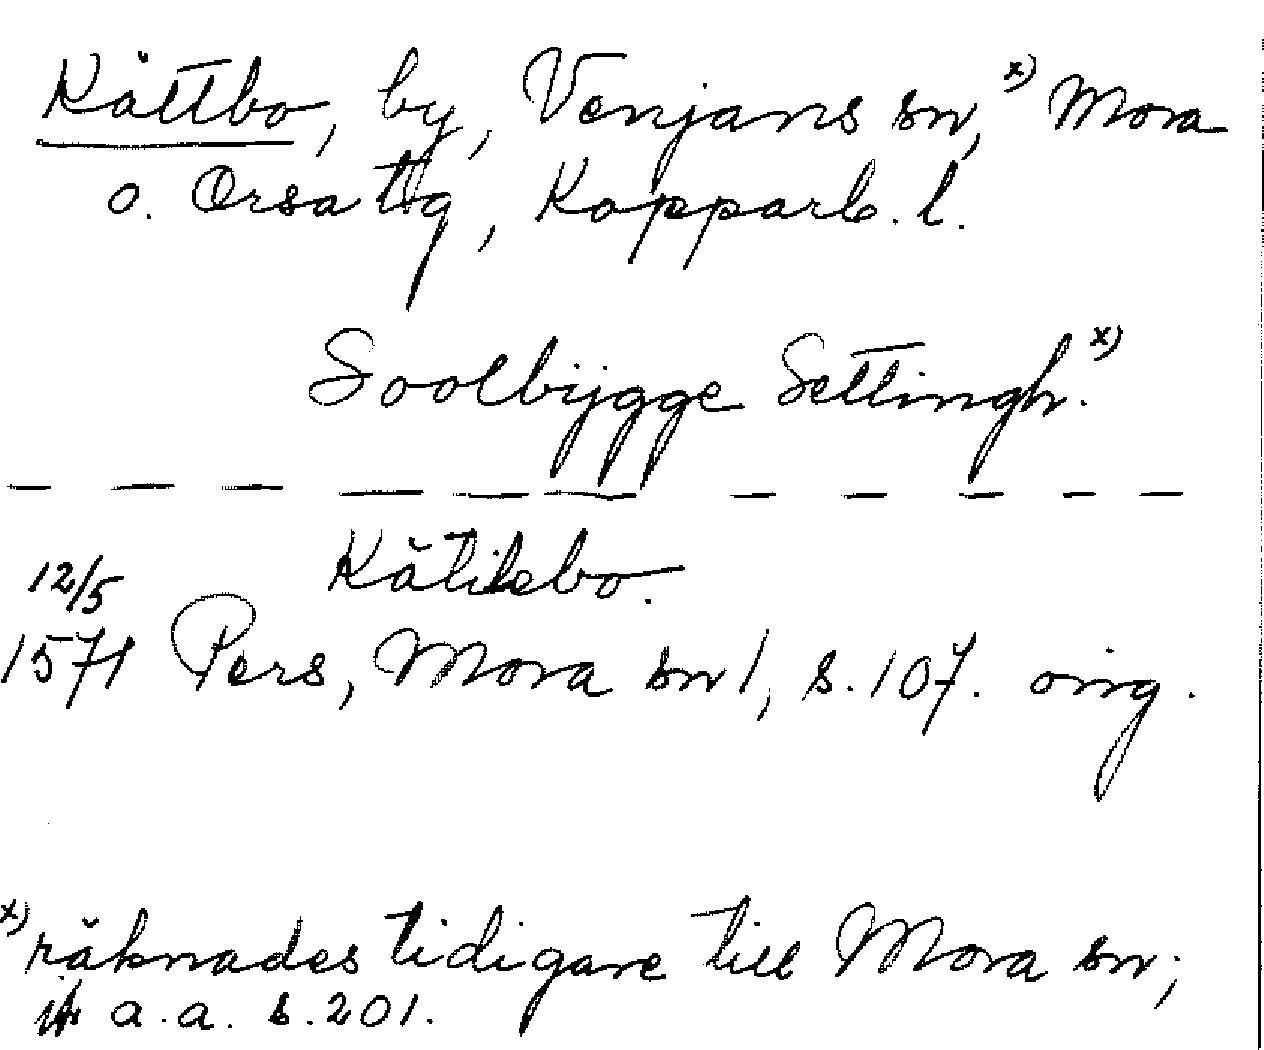 Kättbo, by, Venjans sn, x) Mora
o. Orsa tg, Kopparb. l.
Soolbijgge Settingh. x)
— — — — — — — — — — —
Kätikbo.
12/5
1571 Pers, Mora sn 1, s. 107. orig.
x) räknades tidigare till Mora sn;
jfr a.a. s. 201.